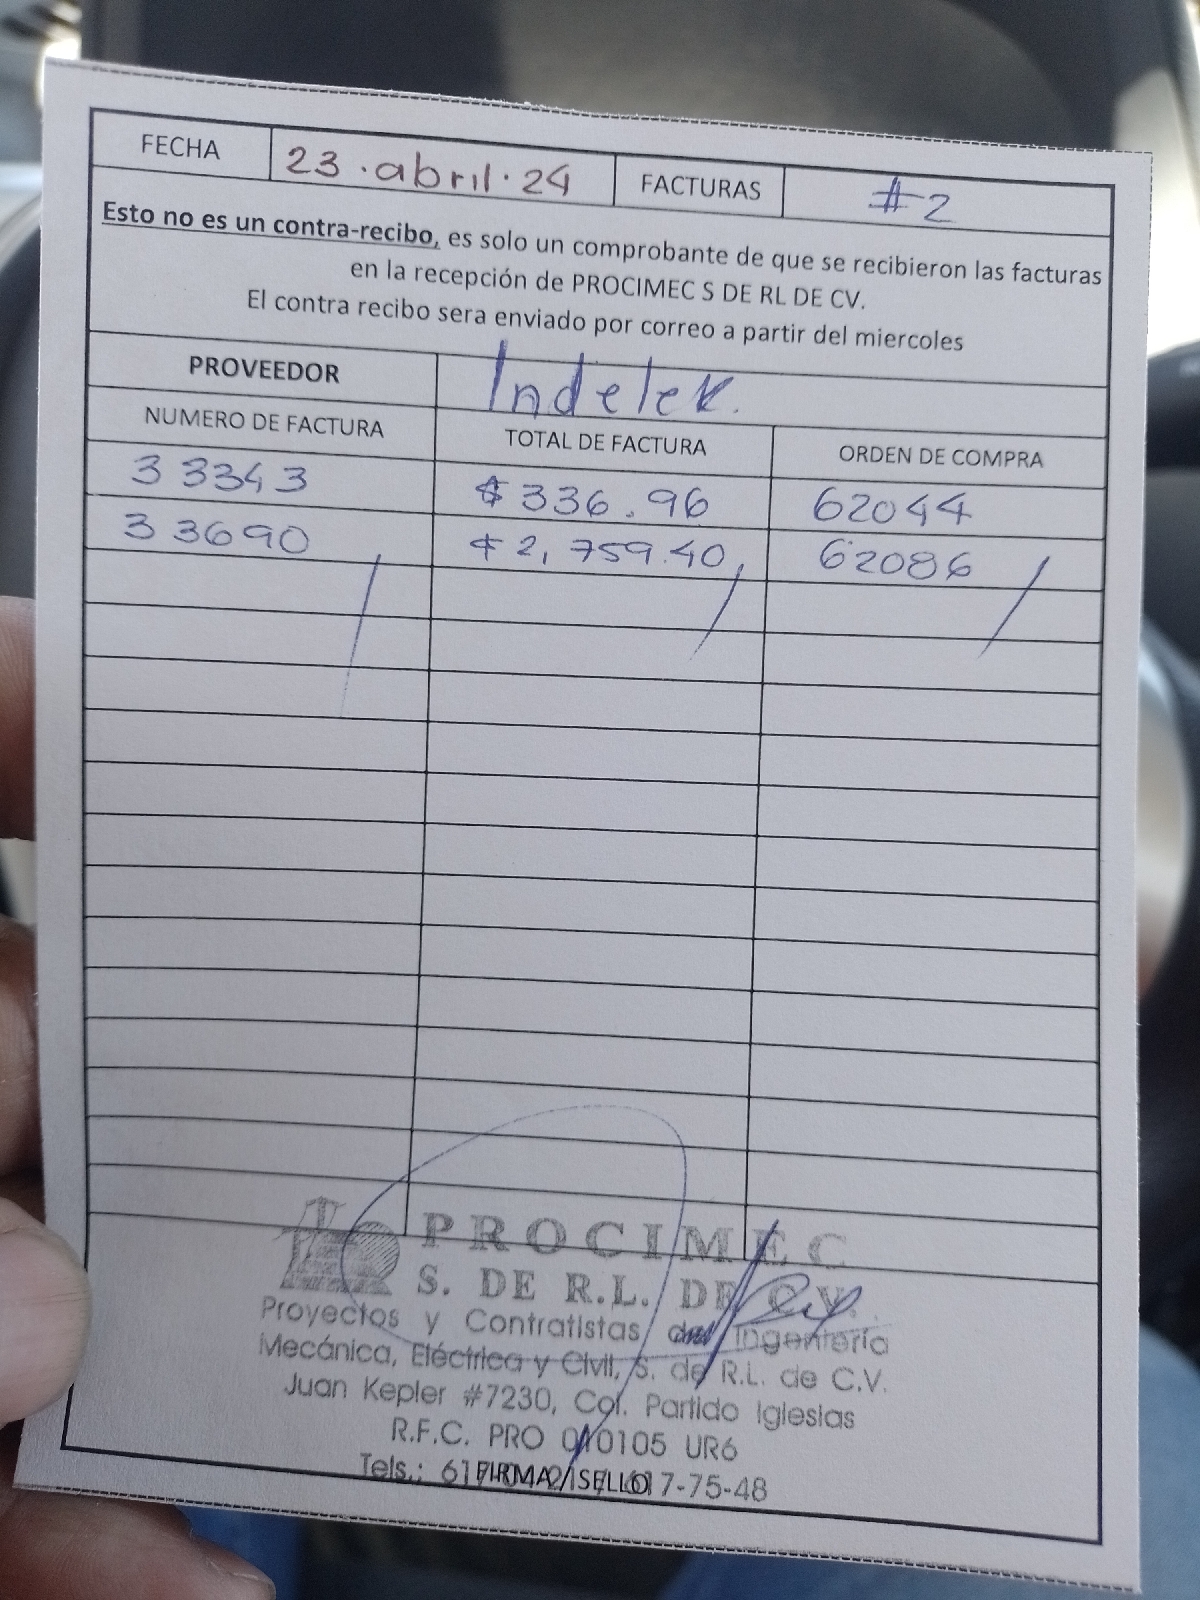 FECHA 23.abril.24 FACTURAS #2
Esto no es un contra-recibo, es solo un comprobante de que se recibieron las facturas
en la recepción de PROCIMEC S DE RL DE CV.
El contra recibo sera enviado por correo a partir del miercoles
PROVEEDOR Indelek.
NUMERO DE FACTURA TOTAL DE FACTURA ORDEN DE COMPRA
33343 $336.96 62044
33690 $2,759.40 62086
PROCIMEC
S. DE R.L. DE C.V.
Proyectos y Contratistas en Ingeniería
Mecánica, Eléctrica y Civil, S. de R.L. de C.V.
Juan Kepler #7230, Col. Partido Iglesias
R.F.C. PRO 010105 UR6
Tels.: 7-75-48
FIRMA / SELLO